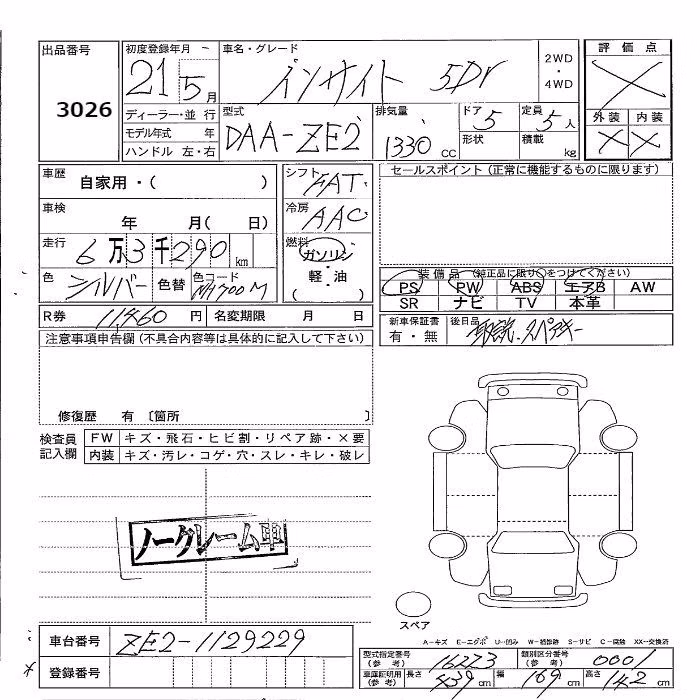 出品番号
3026
初度登録年月
21 5 月
車名・グレード
インサイト 5Dr
2WD
・
4WD
評価点
外装 内装
ディーラー・並行
モデル年式 年
ハンドル 左・右
型式
DAA-ZE2
排気量
1330 cc
ドア
5
形状
定員
5 人
積載
kg
車歴
自家用・( )
車検
年 月( 日)
走行
6万3千290 km
色
シルバー
色替
色コード
NH700M
シフト
FAT
冷房
AAC
燃料
ガソリン
軽・油
( )
セールスポイント (正常に機能するものに限ります)
装備品 (純正品に限り○をつけてください)
PS PW ABS エアB AW
SR ナビ TV 本革
R券 11460 円 名変期限 月 日
新車保証書
有・無
後日品
取説、スペアキー
注意事項申告欄 (不具合内容等は具体的に記入して下さい)
修復歴 有 〔箇所 〕
検査員
記入欄
FW キズ・飛石・ヒビ割・リペア跡・×要
内装 キズ・汚レ・コゲ・穴・スレ・キレ・破レ
ノークレーム車
スペア
A-キズ E-エクボ U-凹み W-補修跡 S-サビ C-腐触 XX-交換済
車台番号 ZE2-1129229
登録番号
型式指定番号
(参考)
16273
類別区分番号
(参考)
0001
車庫証明用
(参考)
長さ 439 cm 幅 169 cm 高さ 142 cm